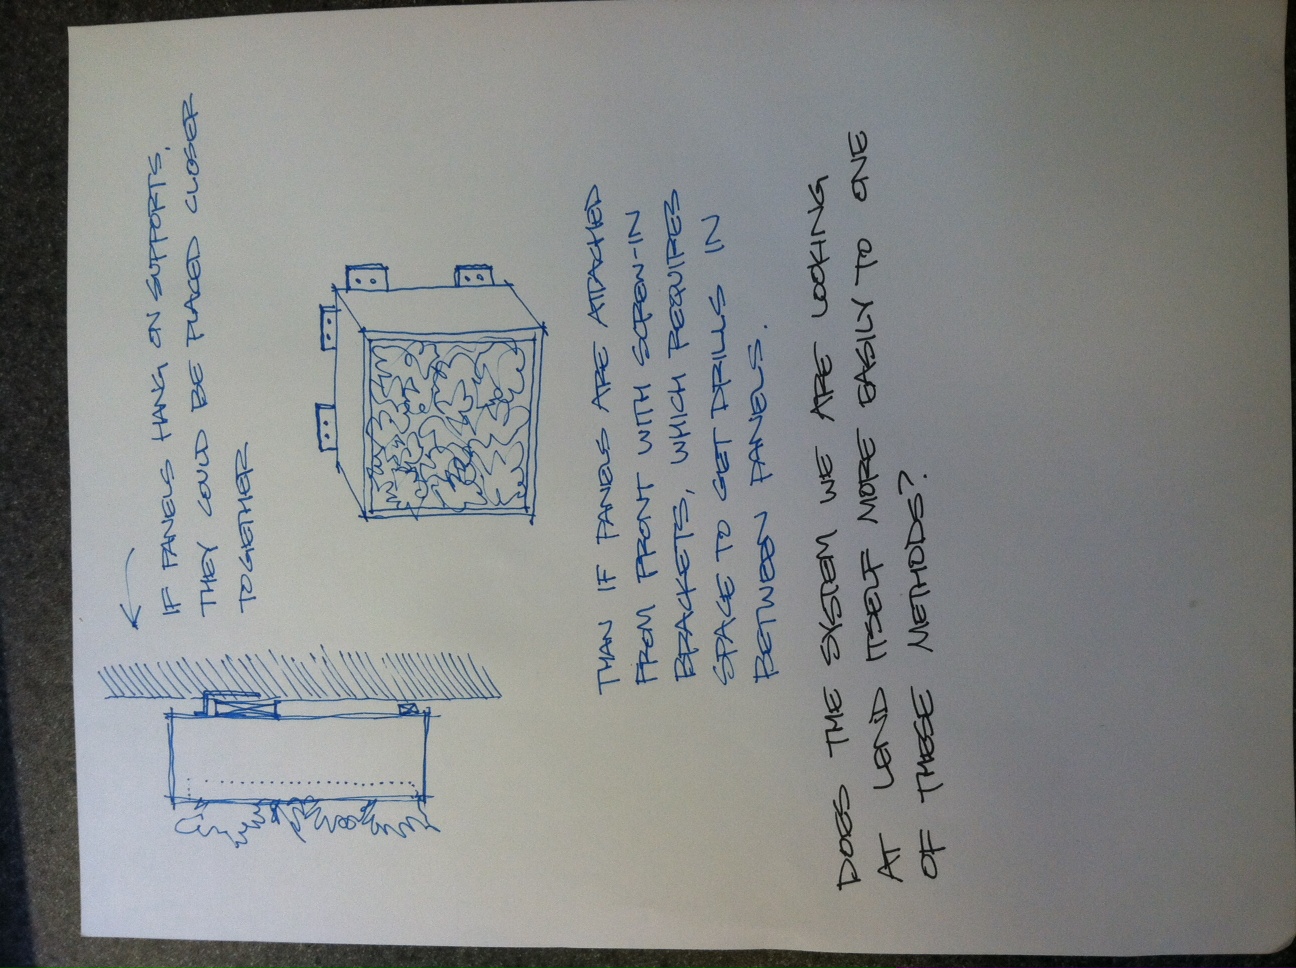 IF PANELS HANG ON SUPPORTS,
THEY COULD BE PLACED CLOSER
TOGETHER
THAN IF PANELS ARE ATTACHED
FROM FRONT WITH SCREW-IN
BRACKETS, WHICH REQUIRES
SPACE TO GET DRILLS IN
BETWEEN PANELS.
DOES THE SYSTEM WE ARE LOOKING
AT LEND ITSELF MORE EASILY TO ONE
OF THESE METHODS?